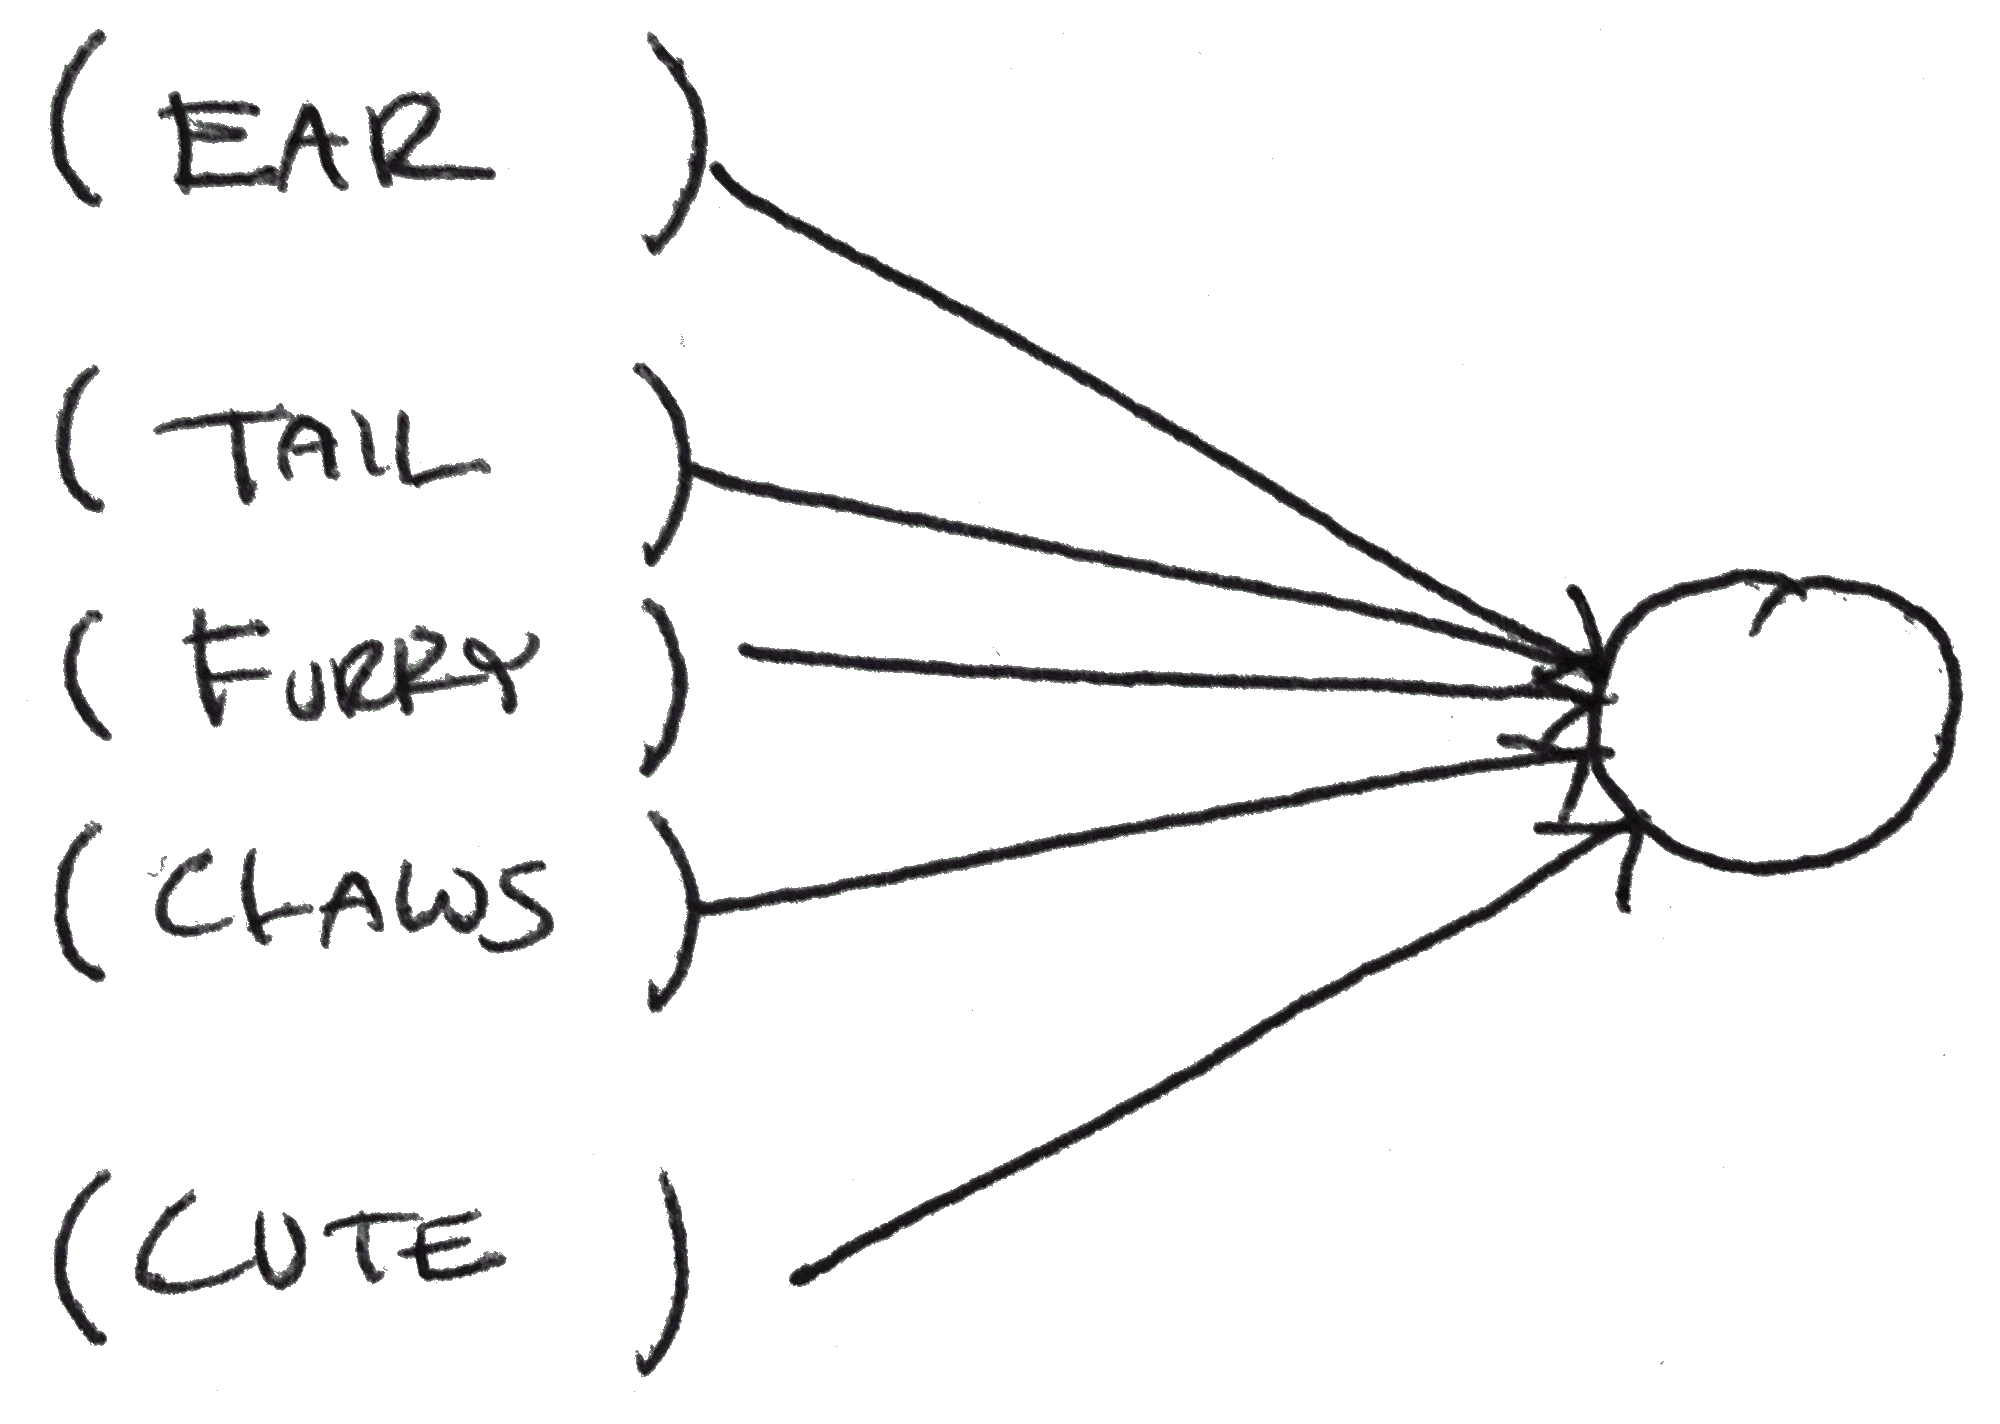 ( EAR )
( TAIL )
( FURRY )
( CLAWS )
( CUTE )